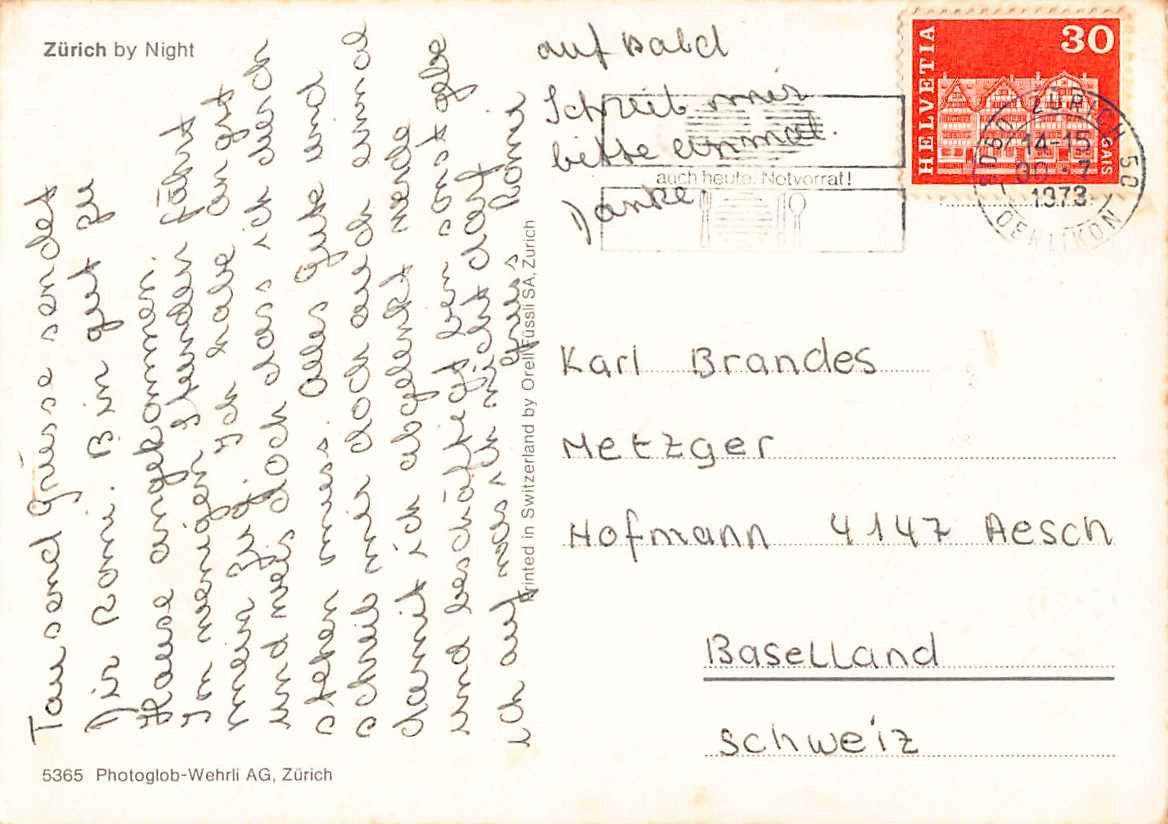 Zürich by Night
Tausend Grüsse sendet
Dir Romi. Bin gut zu
Hause angekommen.
In wenigen Stunden fährt
mein Zug. Ich habe angst
und weis doch das ich durch
stehen muss. Alles Gute und
schreib mir doch auch einmal
damit ich abgelenkt werde
und beschäftiegt ben sonst gebe
ich auf was ich nicht darf
Grus Romi
auf bald
Schreib mir
bitte einmal.
Danke
HELVETIA
30
GAIS
8050 ZÜRICH 50
14-15
30.-7
1973
OERLIKON
auch heute: Notvorrat!
Karl Brandes
Metzger
Hofmann 4147 Aesch
Baselland
Schweiz
Printed in Switzerland by Orell Füssli SA, Zürich
5365 Photoglob-Wehrli AG, Zürich